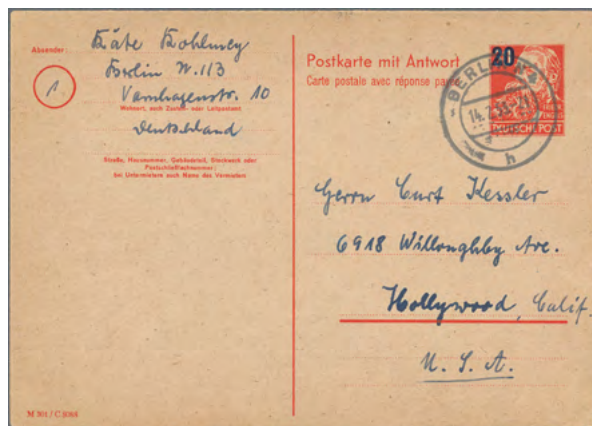 Absender:
Käte Kohlmey
Berlin N.113
Varnhagenstr. 10
Wohnort, auch Zustell- oder Leitpostamt
Deutschland
Straße, Hausnummer, Gebäudeteil, Stockwerk oder
Postschließfachnummer;
bei Untermietern auch Name des Vermieters
1.
M 301 / C 8088
Postkarte mit Antwort
Carte postale avec réponse payée
20
DEUTSCHE POST
BERLIN
h
Herrn Curt Kessler
6918 Willoughby Ave.
Hollywood, Calif.
U. S. A.